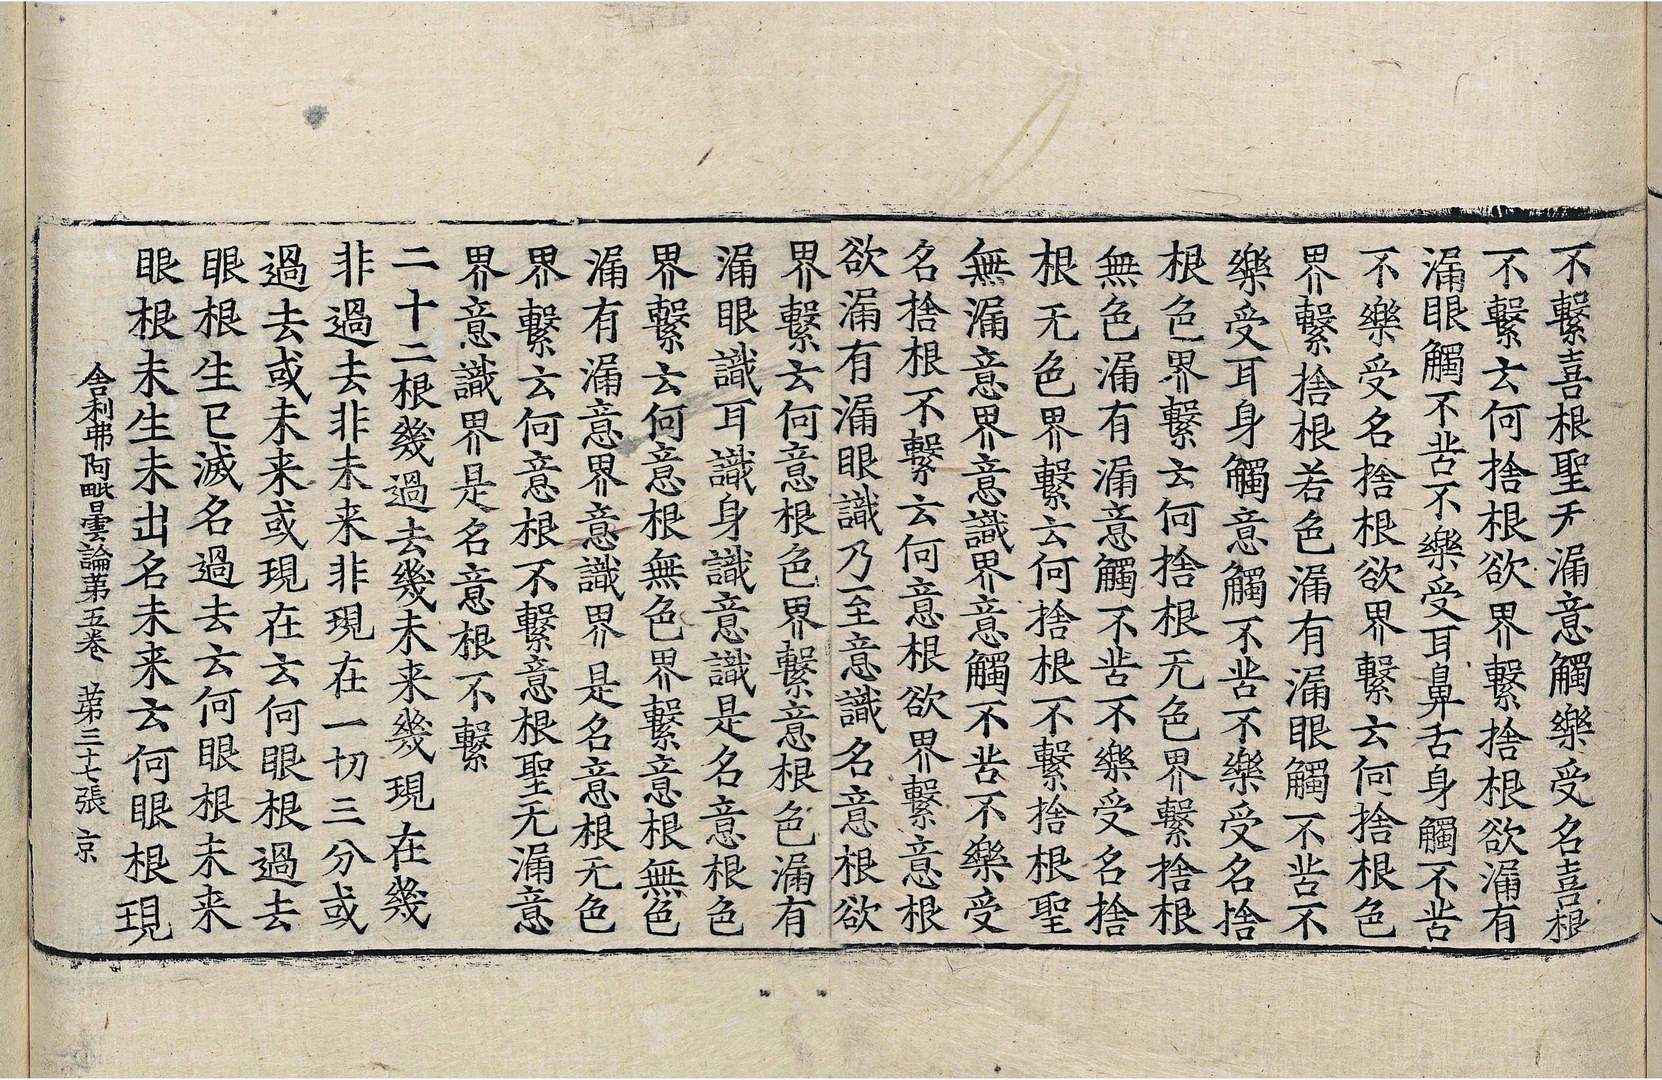 不繫喜根聖无漏意觸樂受名喜根
不繫云何捨根欲界繫捨根欲漏有
漏眼觸不苦不樂受耳鼻舌身觸不苦
不樂受名捨根欲界繫云何捨根色
界繫捨根若色漏有漏眼觸不苦不
樂受耳身觸意觸不苦不樂受名捨
根色界繫云何捨根无色界繫捨根
無色漏有漏意觸不苦不樂受名捨
根无色界繫云何捨根不繫捨根聖
無漏意界意識界意觸不苦不樂受
名捨根不繫云何意根欲界繫意根
欲漏有漏眼識乃至意識名意根欲
界繫云何意根色界繫意根色漏有
漏眼識耳識身識意識是名意根色
界繫云何意根無色界繫意根無色
漏有漏意界意識界是名意根无色
界繫云何意根不繫意根聖无漏意
界意識界是名意根不繫
二十二根幾過去幾未来幾現在幾
非過去非未来非現在一切三分或
過去或未来或現在云何眼根過去
眼根生已滅名過去云何眼根未来
眼根未生未出名未来云何眼根現
舍利弗阿毗曇論苐五卷 苐三十七張 京